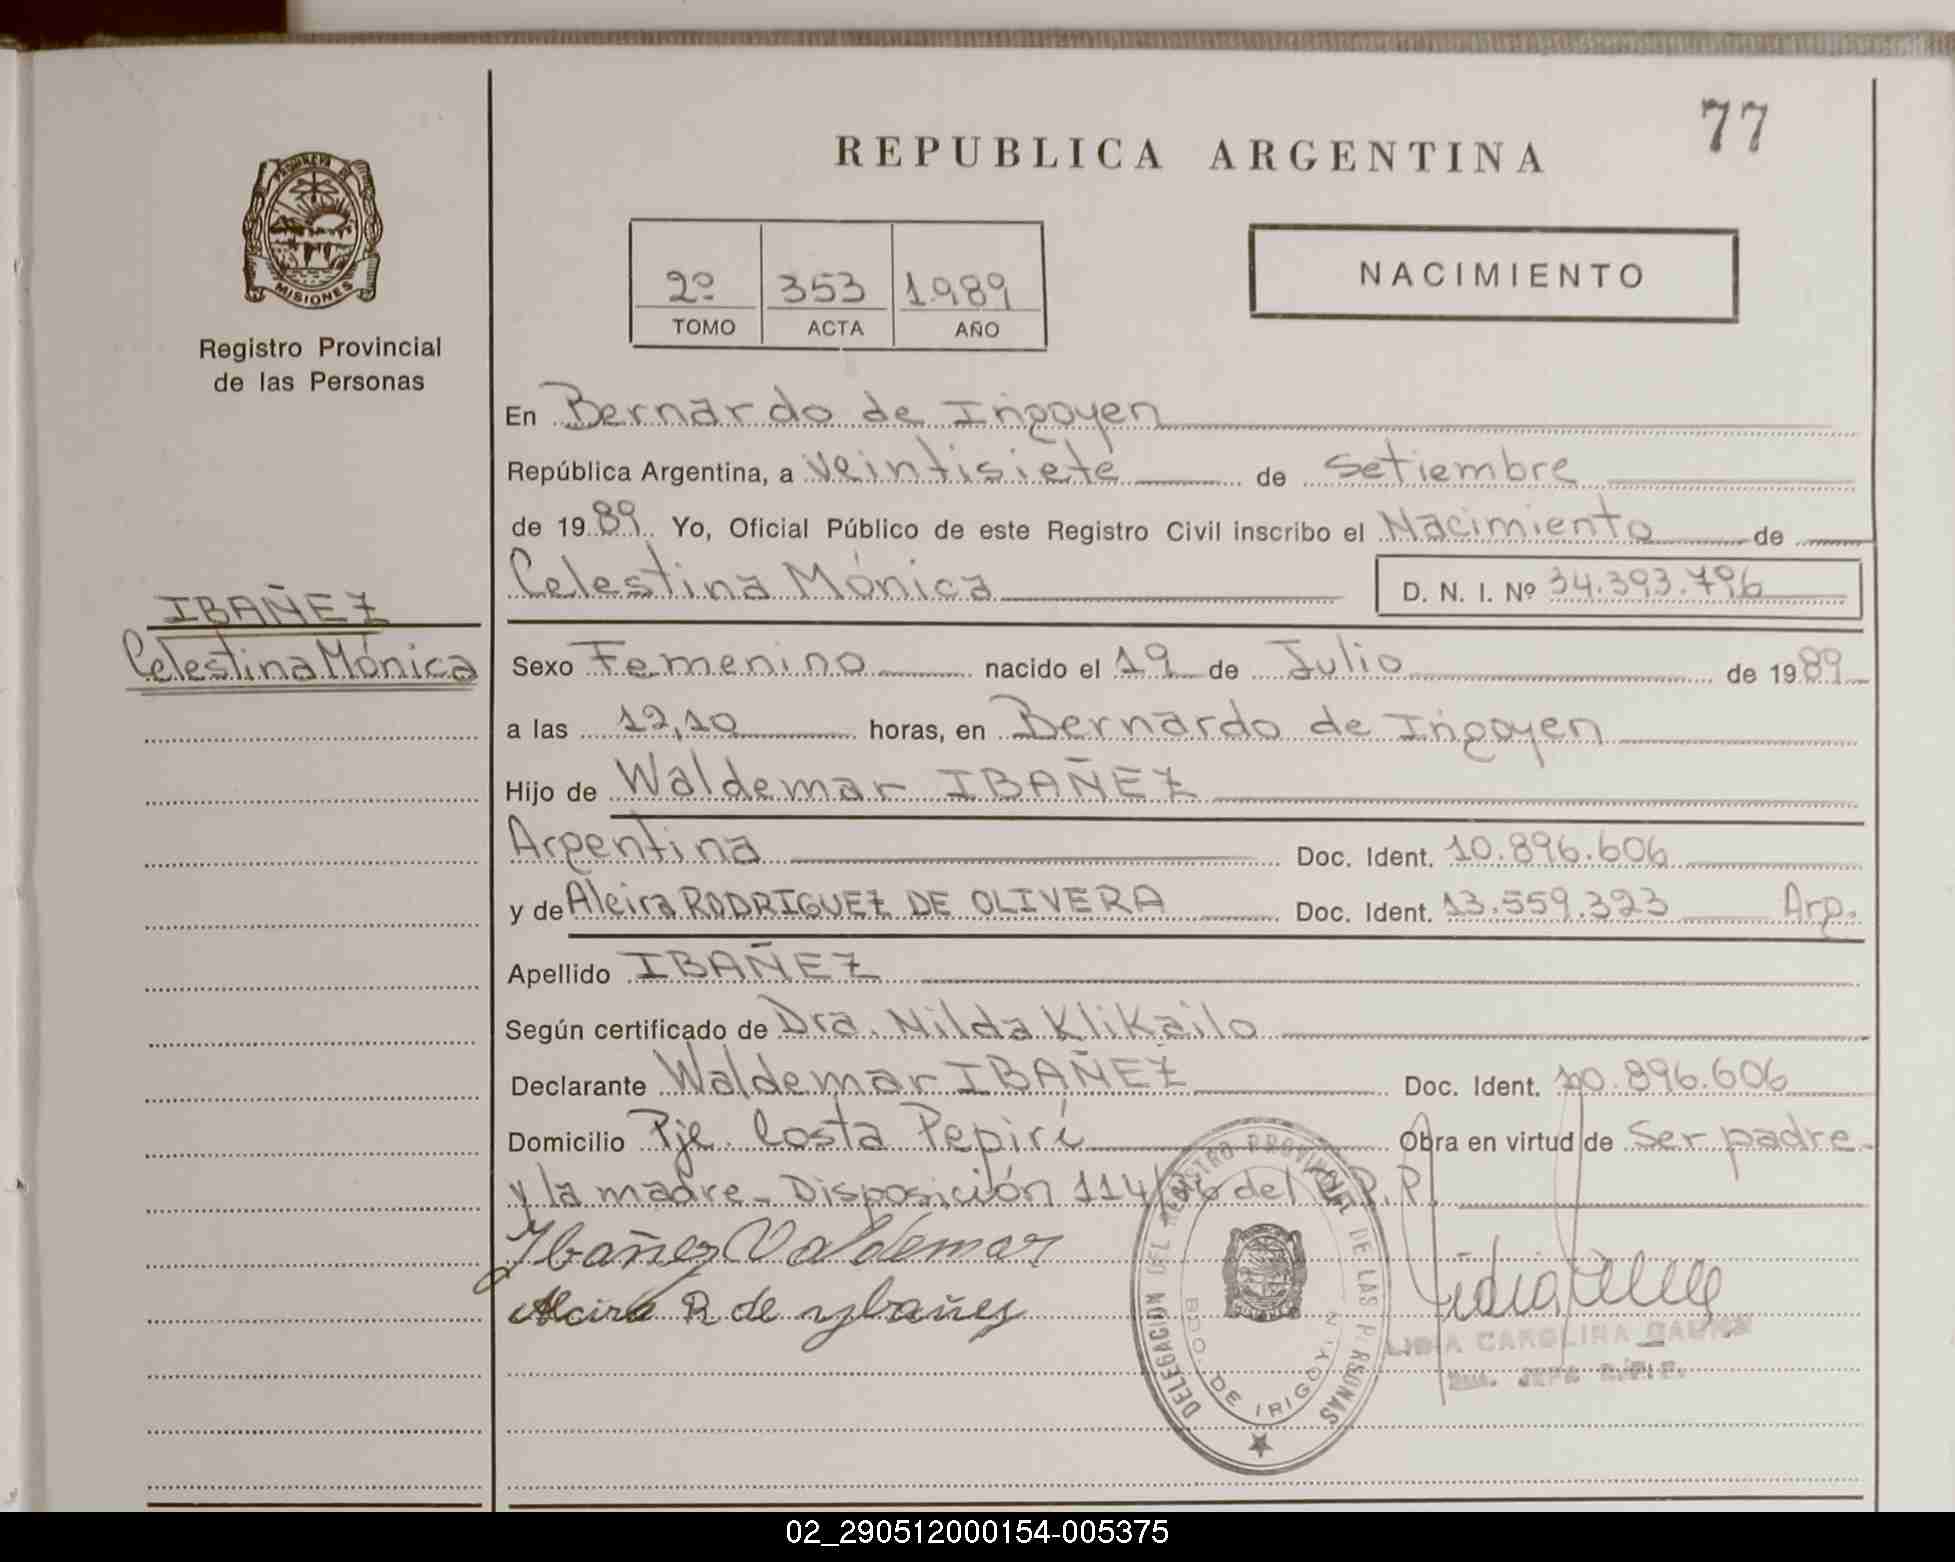 77
REPUBLICA ARGENTINA
PROVINCIA DE
MISIONES
Registro Provincial
de las Personas
2º 353 1989
TOMO ACTA AÑO
NACIMIENTO
En Bernardo de Irigoyen
República Argentina, a veintisiete de Setiembre
de 1989. Yo, Oficial Público de este Registro Civil inscribo el Nacimiento de
Celestina Mónica D. N. I. Nº 34.393.796
IBAÑEZ
Celestina Mónica
Sexo Femenino nacido el 19 de Julio de 1989
a las 12,10 horas, en Bernardo de Irigoyen
Hijo de Waldemar IBAÑEZ
Argentina Doc. Ident. 10.896.606
y de Alcira RODRIGUEZ DE OLIVERA Doc. Ident. 13.559.323 Arg.
Apellido IBAÑEZ
Según certificado de Dra. Nilda Klikailo
Declarante Waldemar IBAÑEZ Doc. Ident. 10.896.606
Domicilio Pje. Costa Pepirí Obra en virtud de ser padre
y la madre - Disposición 114/86 del R.P.P.
Ibañez Valdemar
Alcira R de ybañez
DELEGACION DEL REGISTRO PROVINCIAL DE LAS PERSONAS
BDO. DE IRIGOYEN
LIDIA CAROLINA
JEFA R.P.P.
02_290512000154-005375